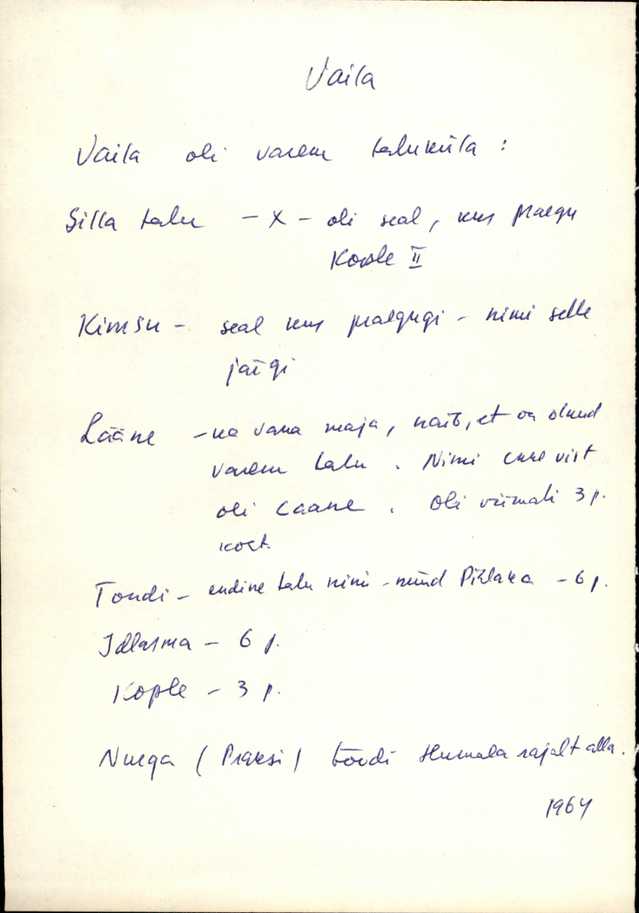 Vaila
Vaila oli varem taluküla :
Silla talu – X – oli seal, kus praegu
Kople II
Kimsu – seal kus praegugi – nimi selle
järgi
Lääne – vana maja, näib, et on olnud
varem talu . Nimi vist
oli Lääne . Oli viimati 3 p.
koht.
Tondi – endine talu nimi – nüüd Pihlaka – 6 p.
Idlasma – 6 p.
Kople – 3 p.
Nurga ( Praksi ) toodi Humala rajalt alla.
1964